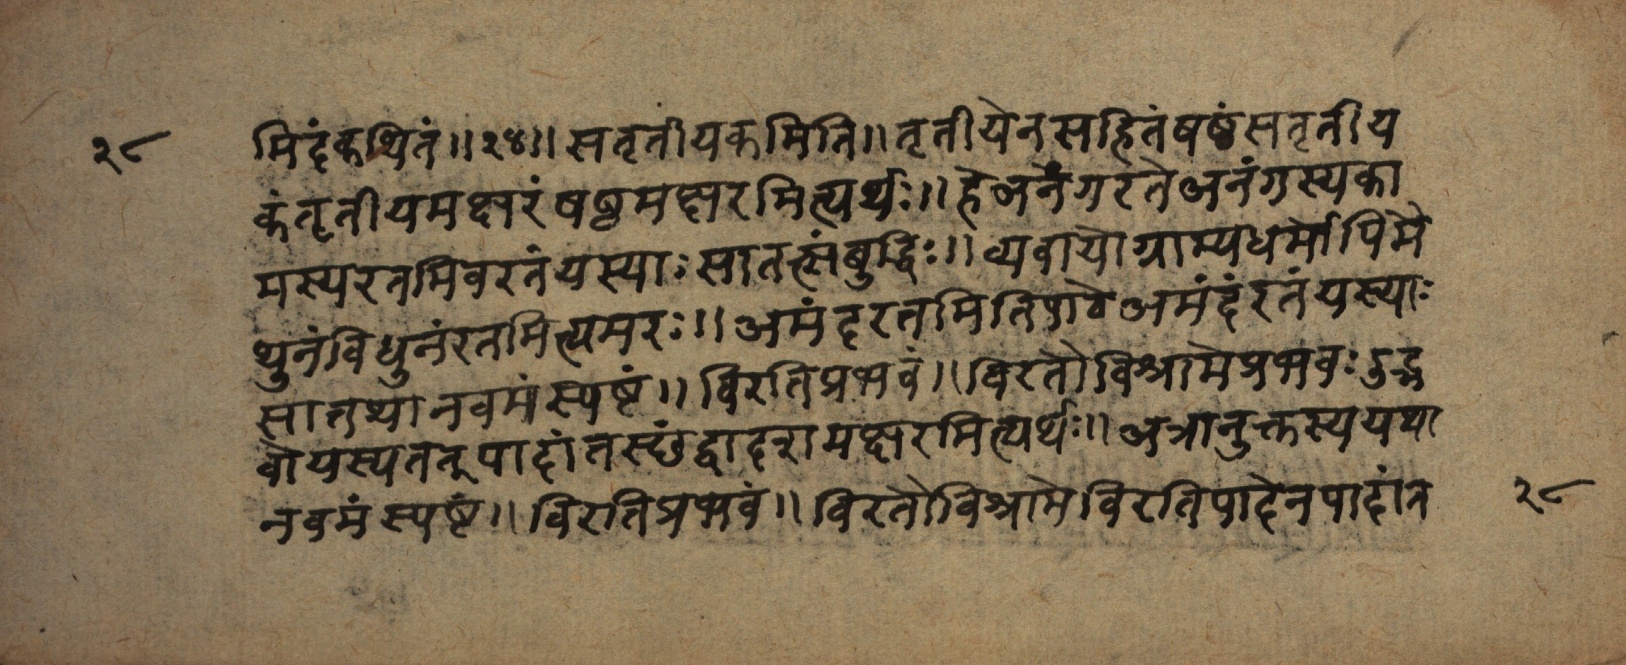 २८
मिदंकथितं॥२४॥सतृतीयकमिति॥तृतीयेनसहितंषष्ठंसतृतीय
कंतृतीयमक्षरंषष्ठमक्षरमित्यर्थः॥हेअनंगरतेअनंगस्यका
मस्यरतमिवरतंयस्याःसातत्संबुद्धिः॥व्यवायोग्राम्यधर्मोपिमै
थुनंविधुनंरतमित्यमरः॥अमंदरतमितिपाठेअमंदंरतंयस्याः
सातथानवमंस्पष्टं॥विरतिप्रभवं॥विरतौविश्रामेप्रभवःउद्भ
वोयस्यतत्पादांतस्छंद्वादशमक्षरमित्यर्थः॥अत्रानुक्तस्ययथा
नवमंस्पष्टं॥विरतिप्रभवं॥विरतौविश्रामेविरतिपादेनपादांत
२८